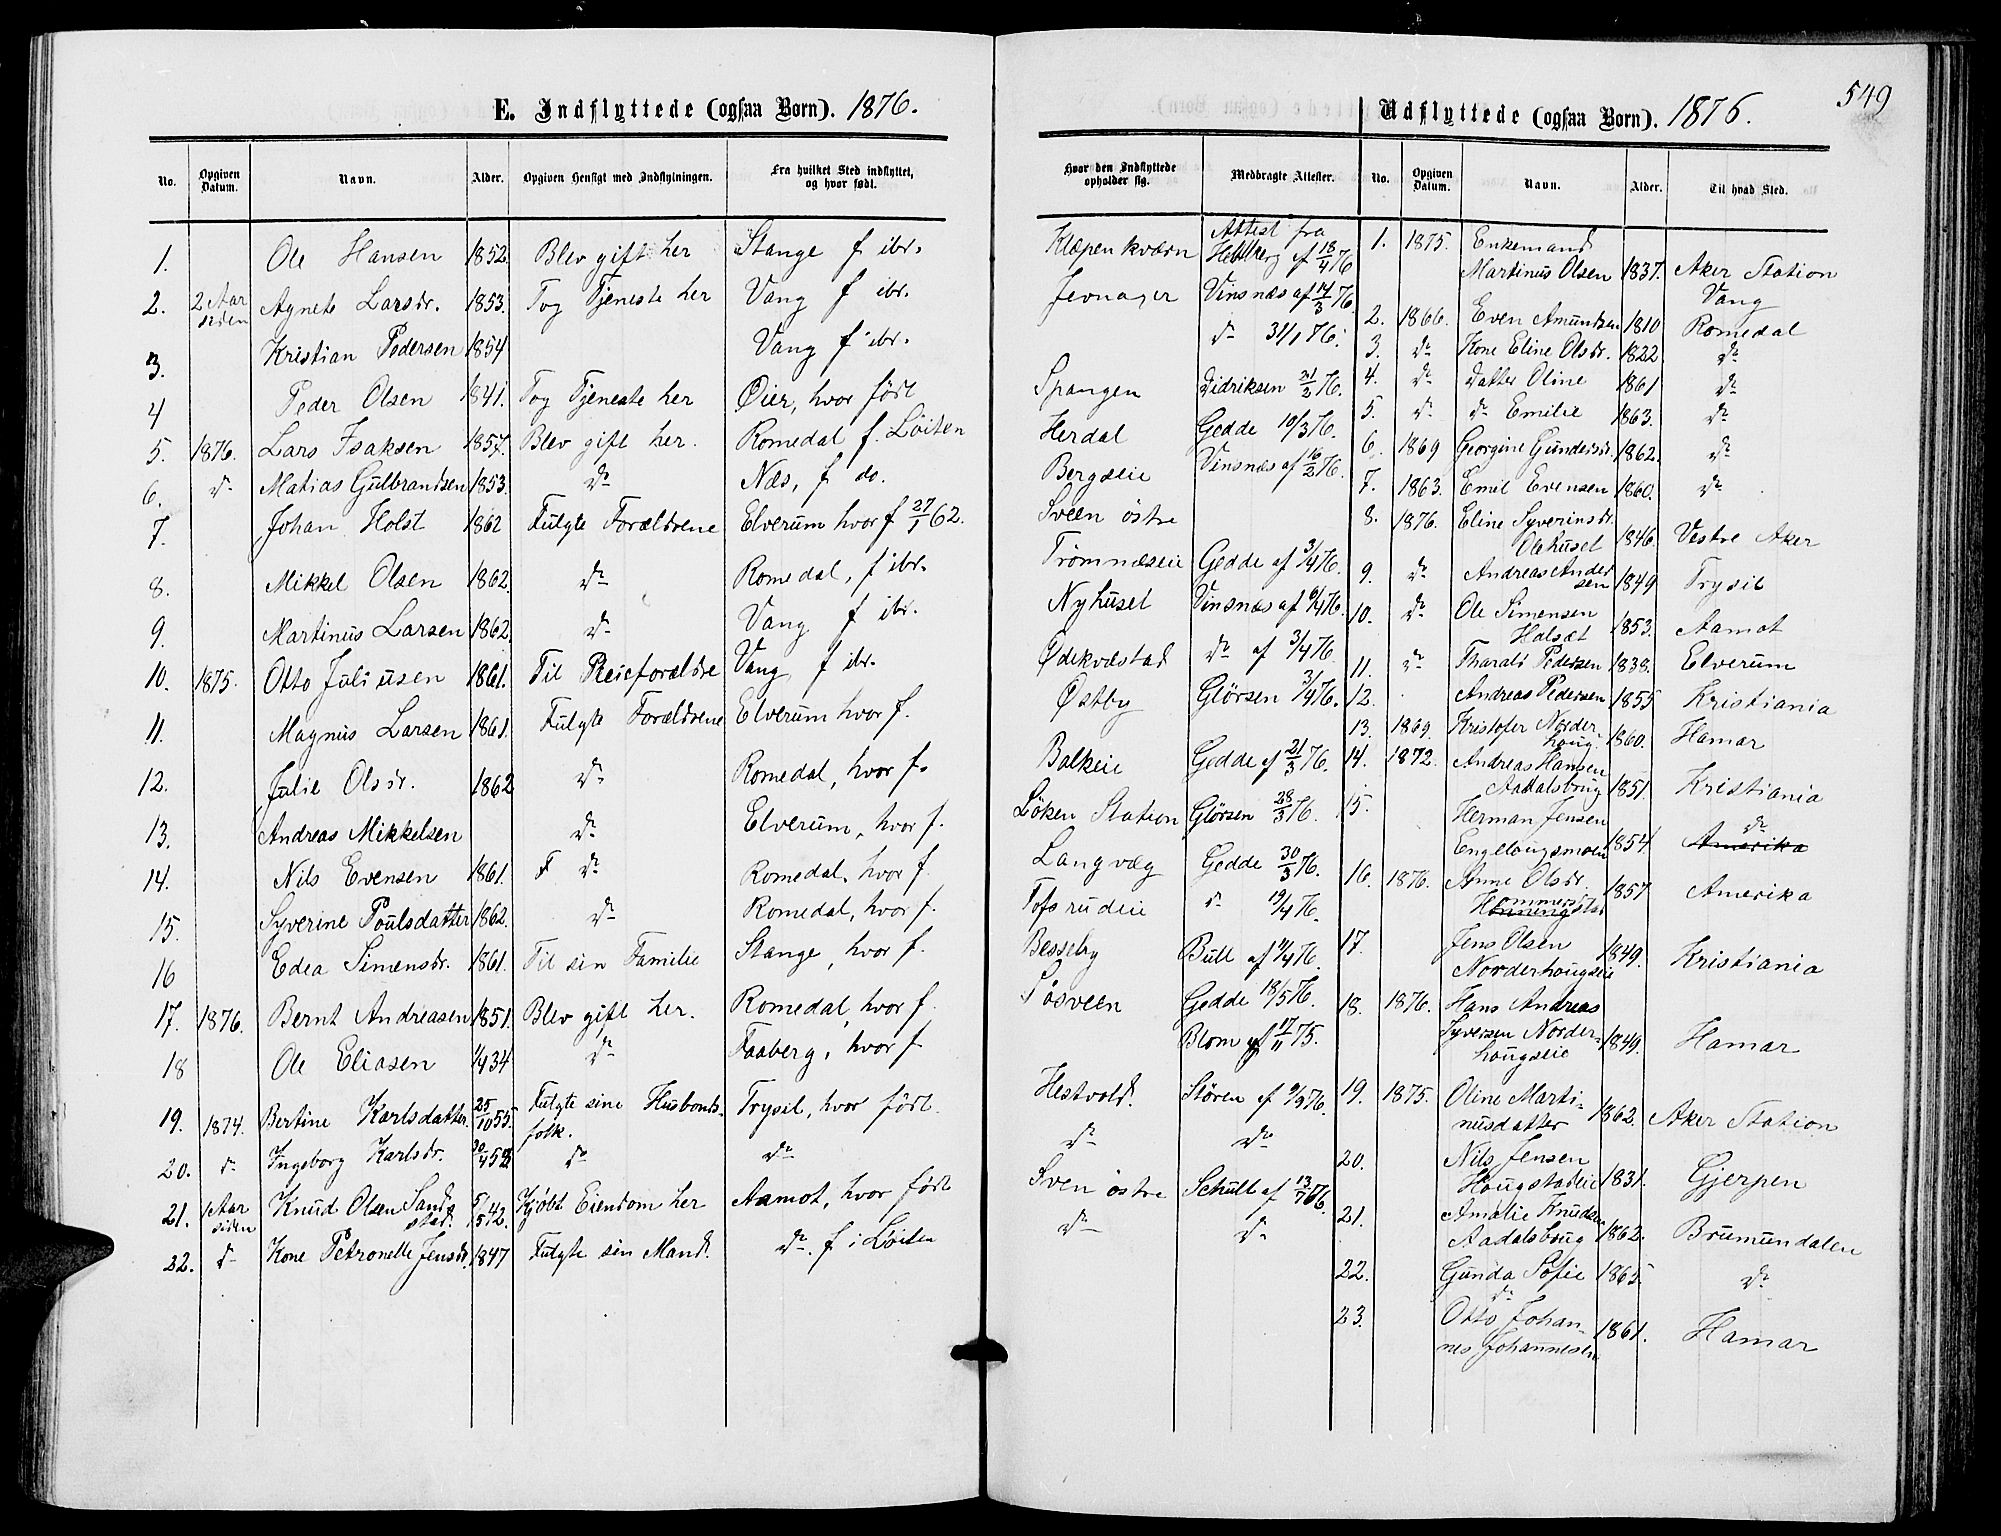 E. Indflyttede (ogsaa Børn). 1876.
No. Opgiven Datum. Navn. Alder. Opgiven Hensigt med Indflytningen. Fra hvilket Sted indflyttet, og hvor født.
1. Ole Hansen 1852. Blev gift her Stange f ibr.
2. 2 Aar siden Agnete Larsdr. 1853. Tog Tjeneste her Vang f ibr.
3. Kristian Pedersen 1854 Vang f ibr.
4 Peder Olsen 1841. Tog Tjeneste her Øier, hvor født
5. 1876. Lars Isaksen 1857. Blev gift her. Romedal f. Løiten
6. do Matias Gulbrandsen 1853. do Næs, f do.
7. Johan Holst 1862 Fulgte Forældrene Elverum hvor f 27/1 62.
8. Mikkel Olsen 1862. do Romedal, f ibr.
9. Martinus Larsen 1862. do Vang f ibr.
10. 1875. Otto Juliusen 1861. Til Pleieforældre Vang f ibr.
11. Magnus Larsen 1861. Fulgte Forældrene Elverum hvor f.
12. Julie Olsdr. 1862 do Romedal, hvor f.
13. Andreas Mikkelsen do Elverum, hvor f.
14. Nils Evensen 1861. F do Romedal, hvor f.
15. Syverine Poulsdatter 1862. do Romedal, hvor f.
16 Edea Simensdr. 1861. Til sin Familie Stange, hvor f.
17. 1876. Bernt Andreasen 1851. Blev gift her. Romedal, hvor f.
18 Ole Eliasen 34 do Faaberg, hvor f.
19. 1874. Bertine Karlsdatter 25/10 55. Fulgte sine Husbonds-
folk. Trysil, hvor født.
20. do Ingeborg Karlsdr. do do
21. 1 Aar siden Knud Olsen Sand-
stad. Kjøbt Eiendom her Aamot, hvor født
22. do Kone Petronelle Jensdr. 1847 Fulgte sin Mand. do. f i Løiten
549
Udflyttede (ogsaa Børn). 1876.
Hvor den Indflyttede opholder sig. Medbragte Attester. No. Opgiven Datum. Navn. Alder. Til hvad Sted.
Klæpen kværn Attest fra
af 18/4 76
Jevnager Vinsnæs af 14/3 76.
do 31/1 76.
Spangen Didriksen 21/2 76.
Herdal Gedde 10/3 76.
Bergseie Vinsnæs af 16/2 76.
Sveen østre
Trømnæseie Gedde af 3/4 76.
Nyhuset Vinsnæs af 6/4 76.
Ødekvæstad do af 3/4 76.
Østby Glörsen 3/4 76.
Balkeie Gedde af 21/3 76.
Löken Station Glörsen 28/3 76.
Langvæg Gedde 30/3 76.
Tofsrudeie do 19/4 76.
Besseby Bull af 11/4 76.
Sösveen Gedde 18/5 76.
Blom af 17/11 75.
Hestvold. Stören af 9/9 76.
do do
Sven østre Schult af 13/7 76.
do do
1. 1875. Enkemand
Martinus Olsen 1837. Aker Station
Vang
2. 1866. Even Amundsen 1810 Romedal
3. do Kone Eline Olsdr. 1822. do
4. do Datter Oline 1861 do
5. do do Emilie 1863. do
6. 1869 Georgine Gundersdr. 1862. do
7. 1863. Emil Evensen 1860. do
8. 1876. Eline Syverinsdr.
Olehuset 1846. Vestre Aker
9. do Andreas Ander
sen 1849 Trysil
10. do Ole Simensen
Halsæt 1853. Aamot
11. do Tharald Pedersen 1838. Elverum
12. Andreas Pedersen 1855 Kristiania
13. 1869. Kristofer Norder-
houg 1860. Hamar
14. 1872. Andreas Hansen
Aadalsbrug 1851. Kristiania
15. Herman Jensen
Engelaugsmoen 1854 do
Amerika
16. 1876. Anne Olsdr. 1857 Amerika
17. Jens Olsen
Norderhougseie 1849. Kristiania
18. 1876. Hans Andreas
Syversen Norder-
hougseie 1849. Hamar
19. 1875. Oline Marti-
nusdatter 1862. Aker Station
20. Nils Jensen
Hougstadeie 1831. Gjerpen
21. Amalie Knudsen
Aadalsbrug 1862. Brumundalen
22. Gunda Sofie 1865. do
do
23. Otto Johan-
nes Johannesen 1861. Hamar